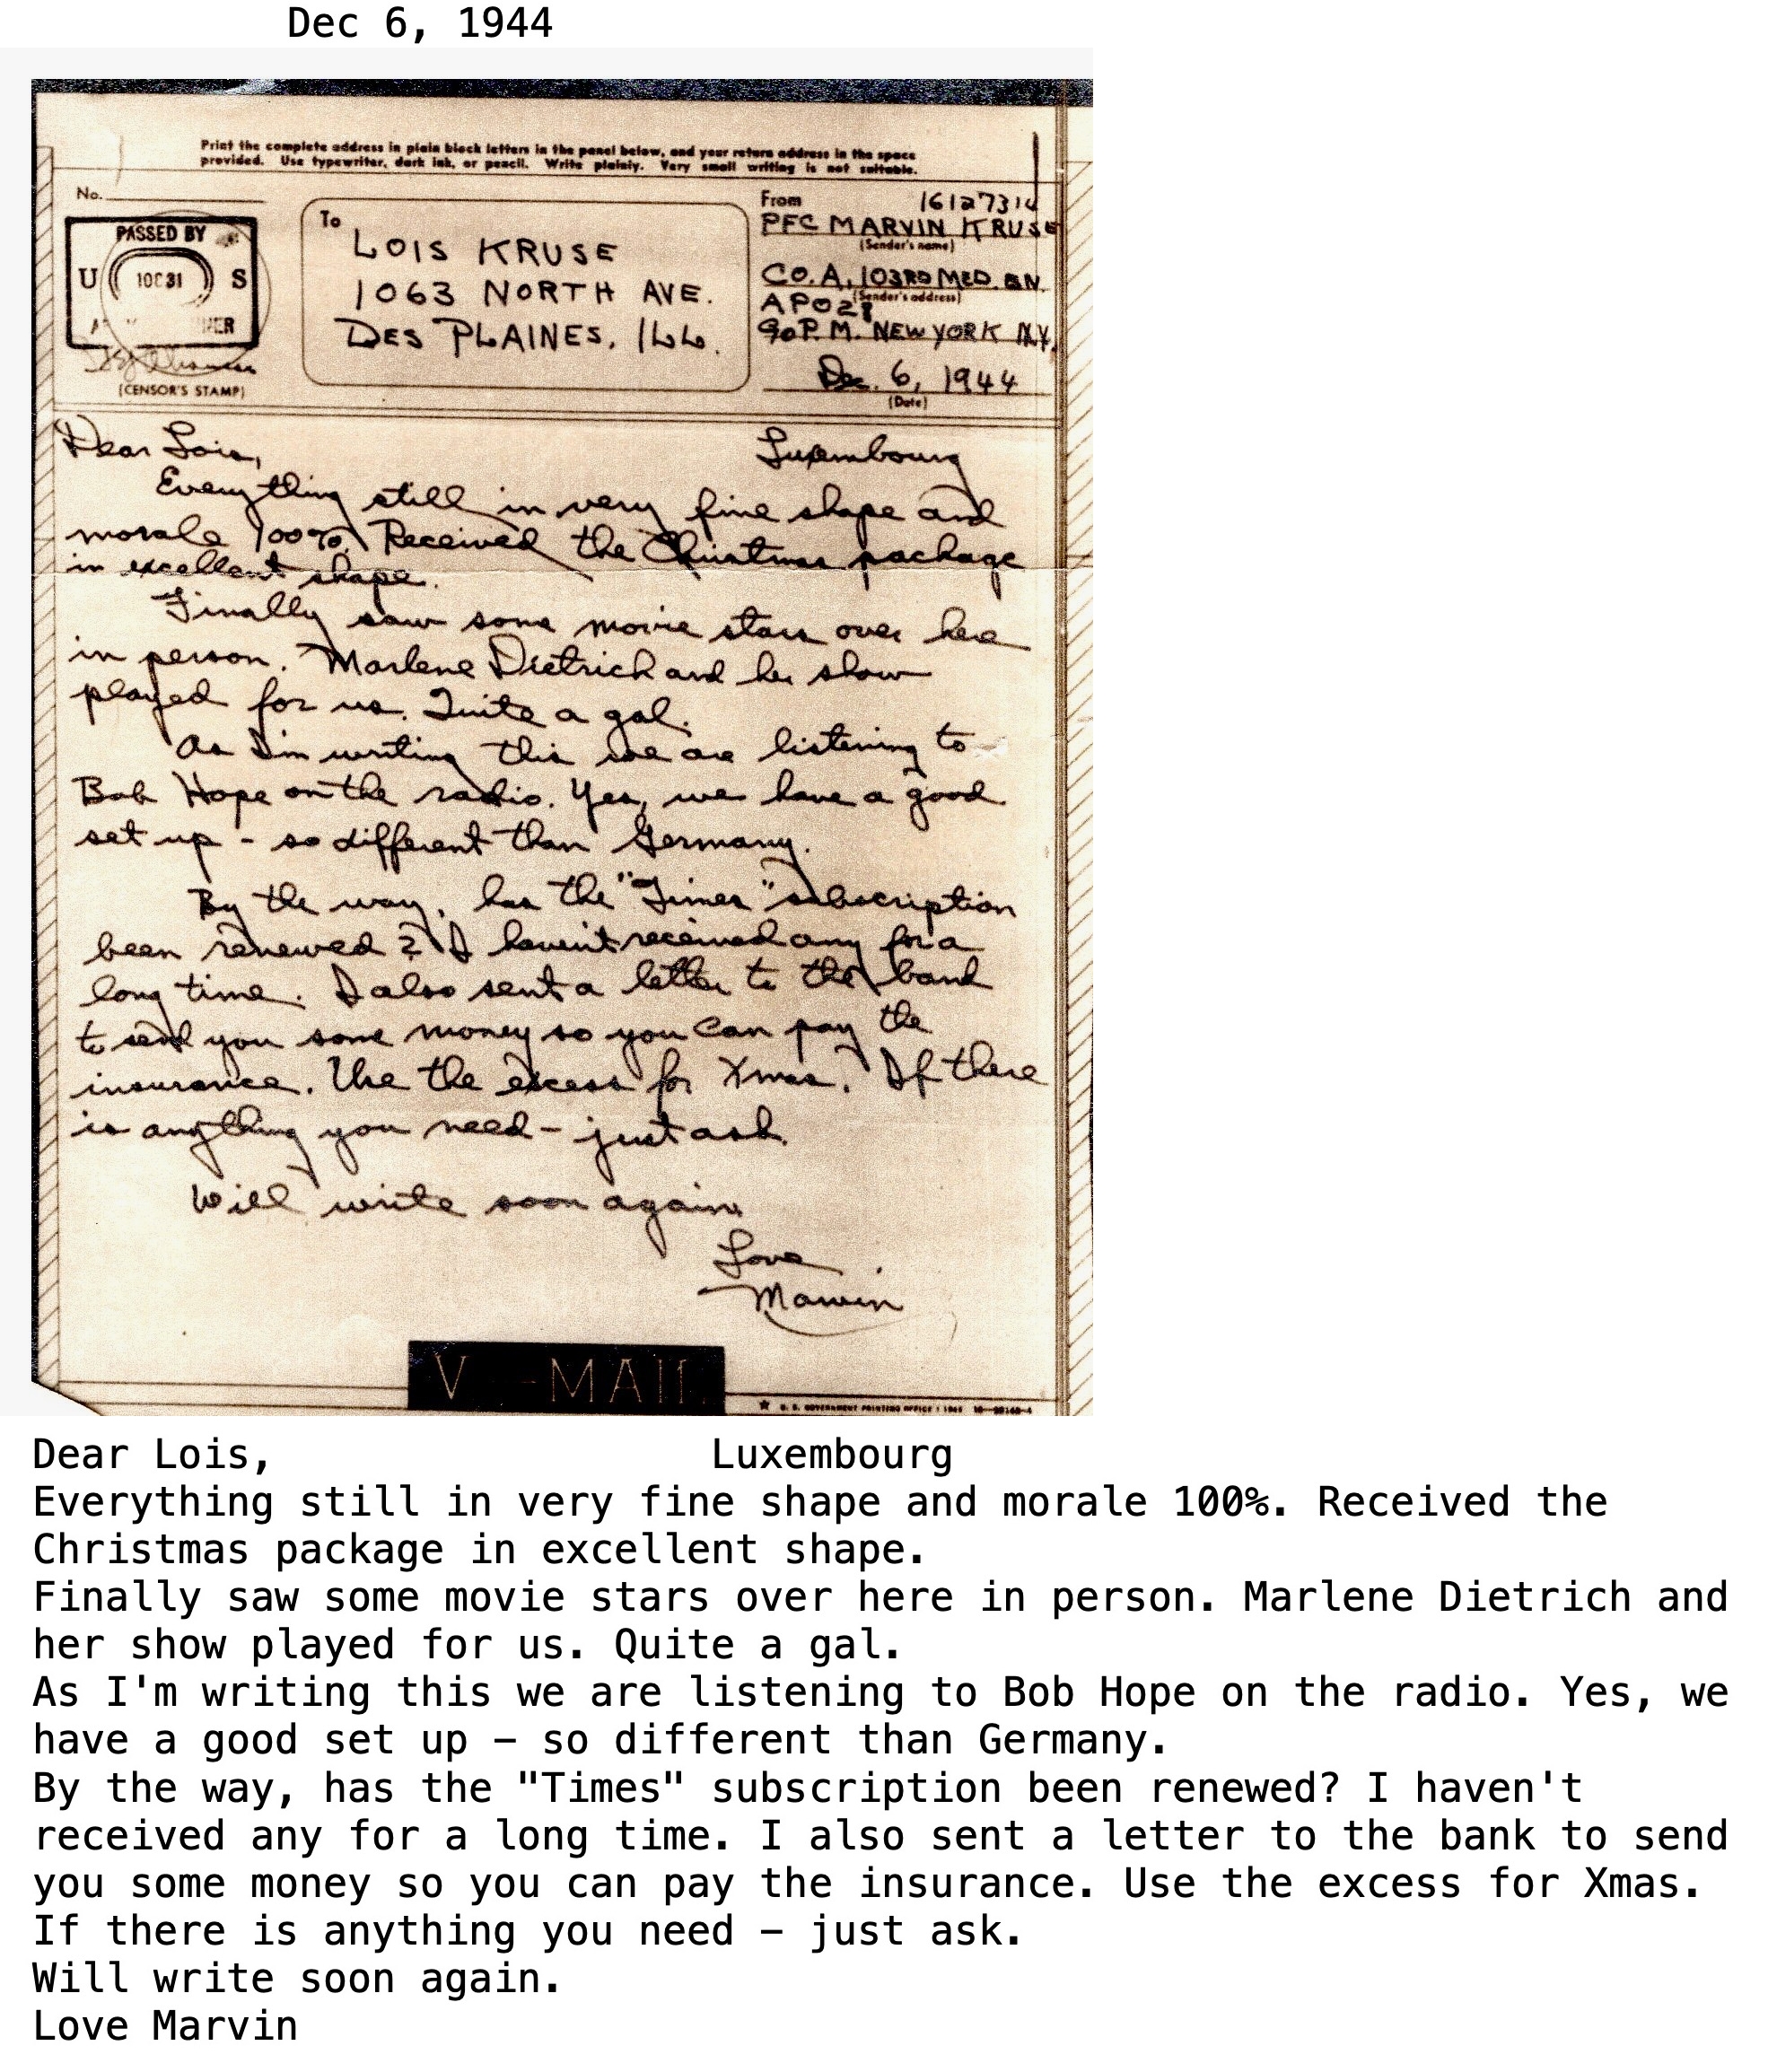 Dec 6, 1944
Print the complete address in plain block letters in the panel below, and your return address in the space
provided. Use typewriter, dark ink, or pencil. Write plainly. Very small writing is not suitable.
No.
PASSED BY
U S
(CENSOR'S STAMP)
To
LOIS KRUSE
1063 NORTH AVE.
DES PLAINES, ILL.
From
PFC MARVIN KRUSE
(Sender's name)
CO. A, 103RD MED. BN.
(Sender's address)
P.M. NEW YORK N.Y.
Dec. 6, 1944
(Date)
Dear Lois, Luxembourg
Everything still in very fine shape and
morale 100%. Received the Christmas package
in excellent shape.
Finally saw some movie stars over here
in person. Marlene Dietrich and her show
played for us. Quite a gal.
As I'm writing this we are listening to
Bob Hope on the radio. Yes, we have a good
set up - so different than Germany.
By the way, has the "Times" subscription
been renewed? I haven't received any for a
long time. I also sent a letter to the bank
to send you some money so you can pay the
insurance. Use the excess for Xmas. If there
is anything you need - just ask.
Will write soon again.
Love
Marvin
V-MAIL
Dear Lois, Luxembourg
Everything still in very fine shape and morale 100%. Received the
Christmas package in excellent shape.
Finally saw some movie stars over here in person. Marlene Dietrich and
her show played for us. Quite a gal.
As I'm writing this we are listening to Bob Hope on the radio. Yes, we
have a good set up – so different than Germany.
By the way, has the "Times" subscription been renewed? I haven't
received any for a long time. I also sent a letter to the bank to send
you some money so you can pay the insurance. Use the excess for Xmas.
If there is anything you need – just ask.
Will write soon again.
Love Marvin